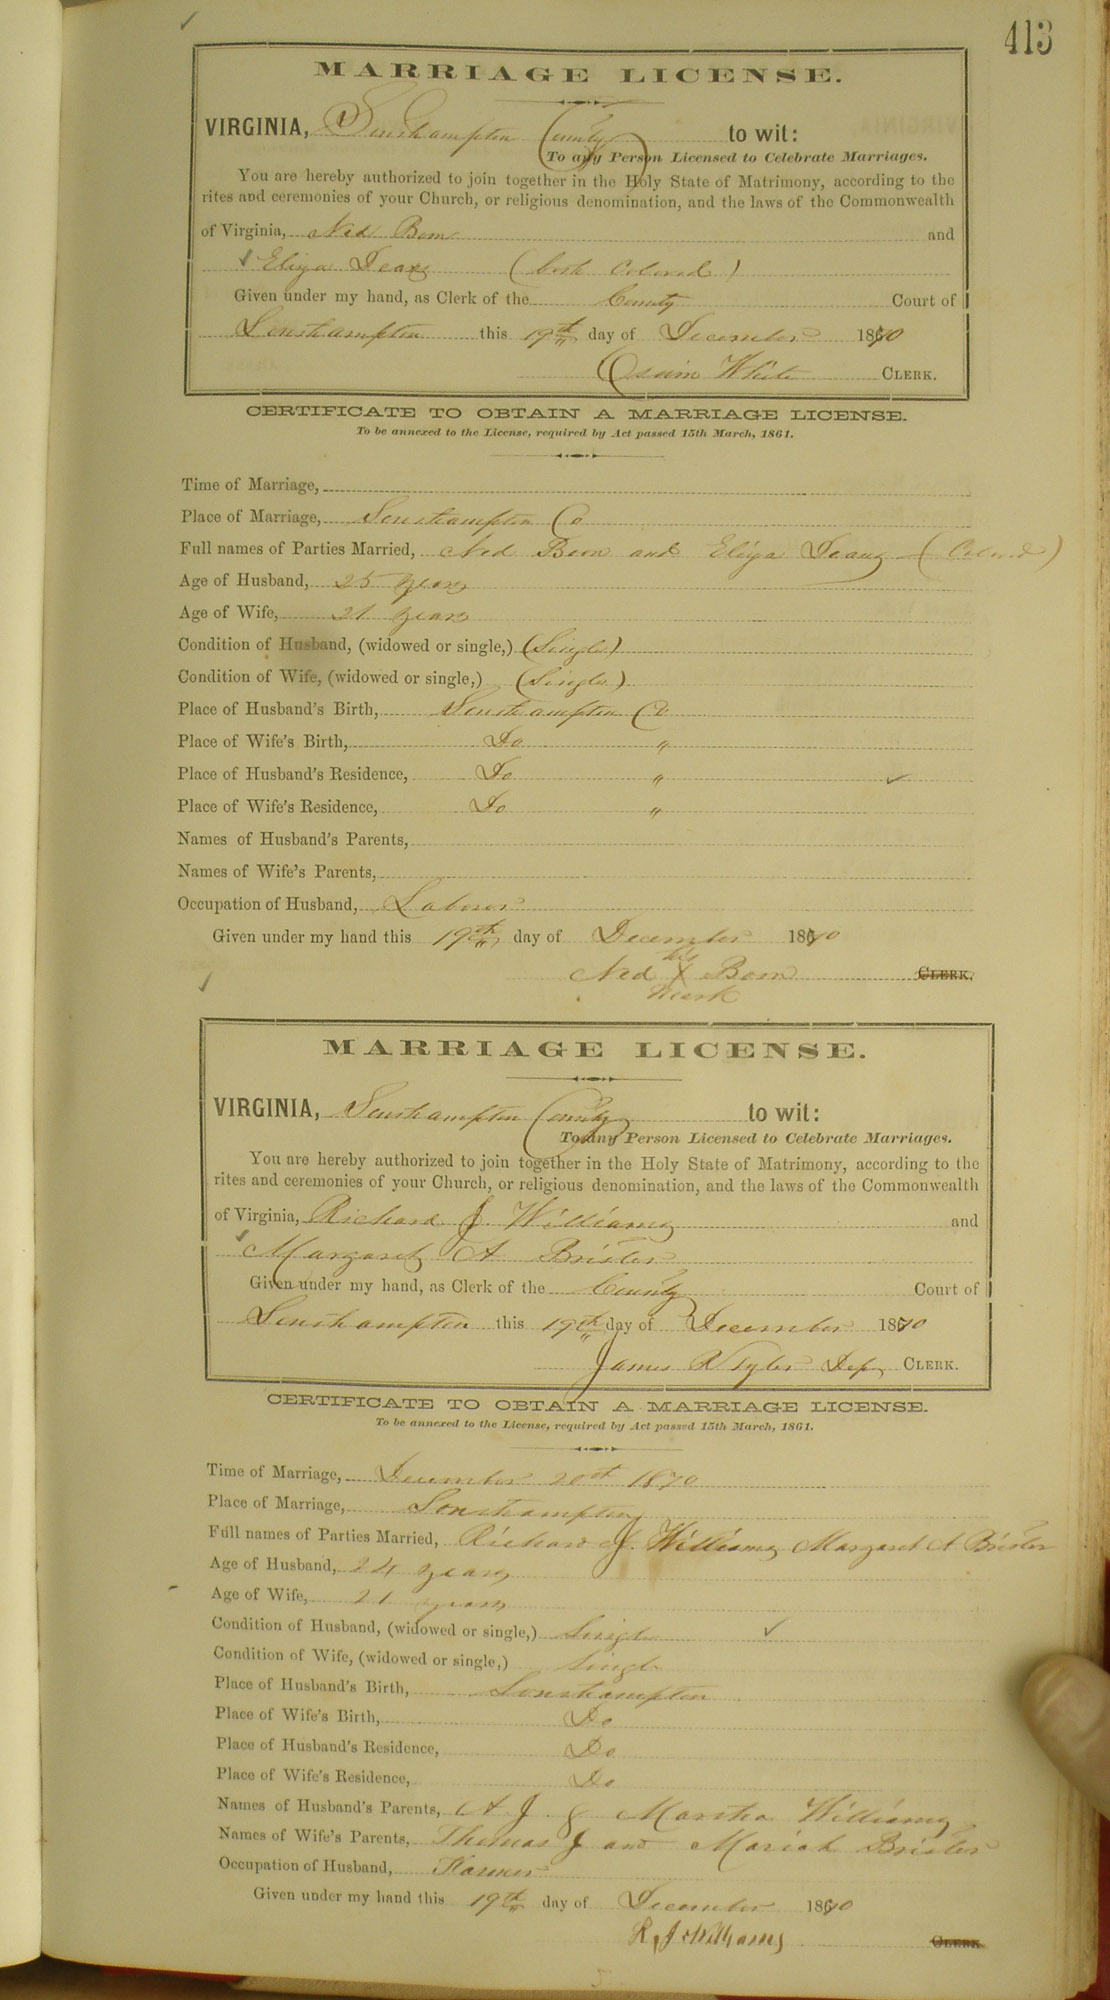 413
MARRIAGE LICENSE.
VIRGINIA, Southampton County to wit:
To any Person Licensed to Celebrate Marriages.
You are hereby authorized to join together in the Holy State of Matrimony, according to the
rites and ceremonies of your Church, or religious denomination, and the laws of the Commonwealth
of Virginia, Ned Boon and
Eliza Deans (both Colored)
Given under my hand, as Clerk of the County Court of
Southampton this 19th day of December 1870
White CLERK.
CERTIFICATE TO OBTAIN A MARRIAGE LICENSE.
To be annexed to the License, required by Act passed 15th March, 1861.
Time of Marriage,
Place of Marriage, Southampton Co
Full names of Parties Married, Ned Boon and Eliza Deans (Colored)
Age of Husband, 25 years
Age of Wife, 21 years
Condition of Husband, (widowed or single,) (Single)
Condition of Wife, (widowed or single,) (Single)
Place of Husband's Birth, Southampton Co
Place of Wife's Birth, Do "
Place of Husband's Residence, Do "
Place of Wife's Residence, Do "
Names of Husband's Parents,
Names of Wife's Parents,
Occupation of Husband, Laborer
Given under my hand this 19th day of December 1870
his
Ned X Boon CLERK.
mark
MARRIAGE LICENSE.
VIRGINIA, Southampton County to wit:
To any Person Licensed to Celebrate Marriages.
You are hereby authorized to join together in the Holy State of Matrimony, according to the
rites and ceremonies of your Church, or religious denomination, and the laws of the Commonwealth
of Virginia, Richard J. Williams and
Margaret A Brister
Given under my hand, as Clerk of the County Court of
Southampton this 19th day of December 1870
James R Tyler Dep CLERK.
CERTIFICATE TO OBTAIN A MARRIAGE LICENSE.
To be annexed to the License, required by Act passed 15th March, 1861.
Time of Marriage, December 20th 1870
Place of Marriage, Southampton
Full names of Parties Married, Richard J. Williams Margaret A Brister
Age of Husband, 24 years
Age of Wife, 21 years
Condition of Husband, (widowed or single,) Single
Condition of Wife, (widowed or single,) Single
Place of Husband's Birth, Southampton
Place of Wife's Birth, Do
Place of Husband's Residence, Do
Place of Wife's Residence, Do
Names of Husband's Parents, A. J. & Martha Williams
Names of Wife's Parents, Thomas J and Mariah Brister
Occupation of Husband, Farmer
Given under my hand this 19th day of December 1870
R, J Williams CLERK.